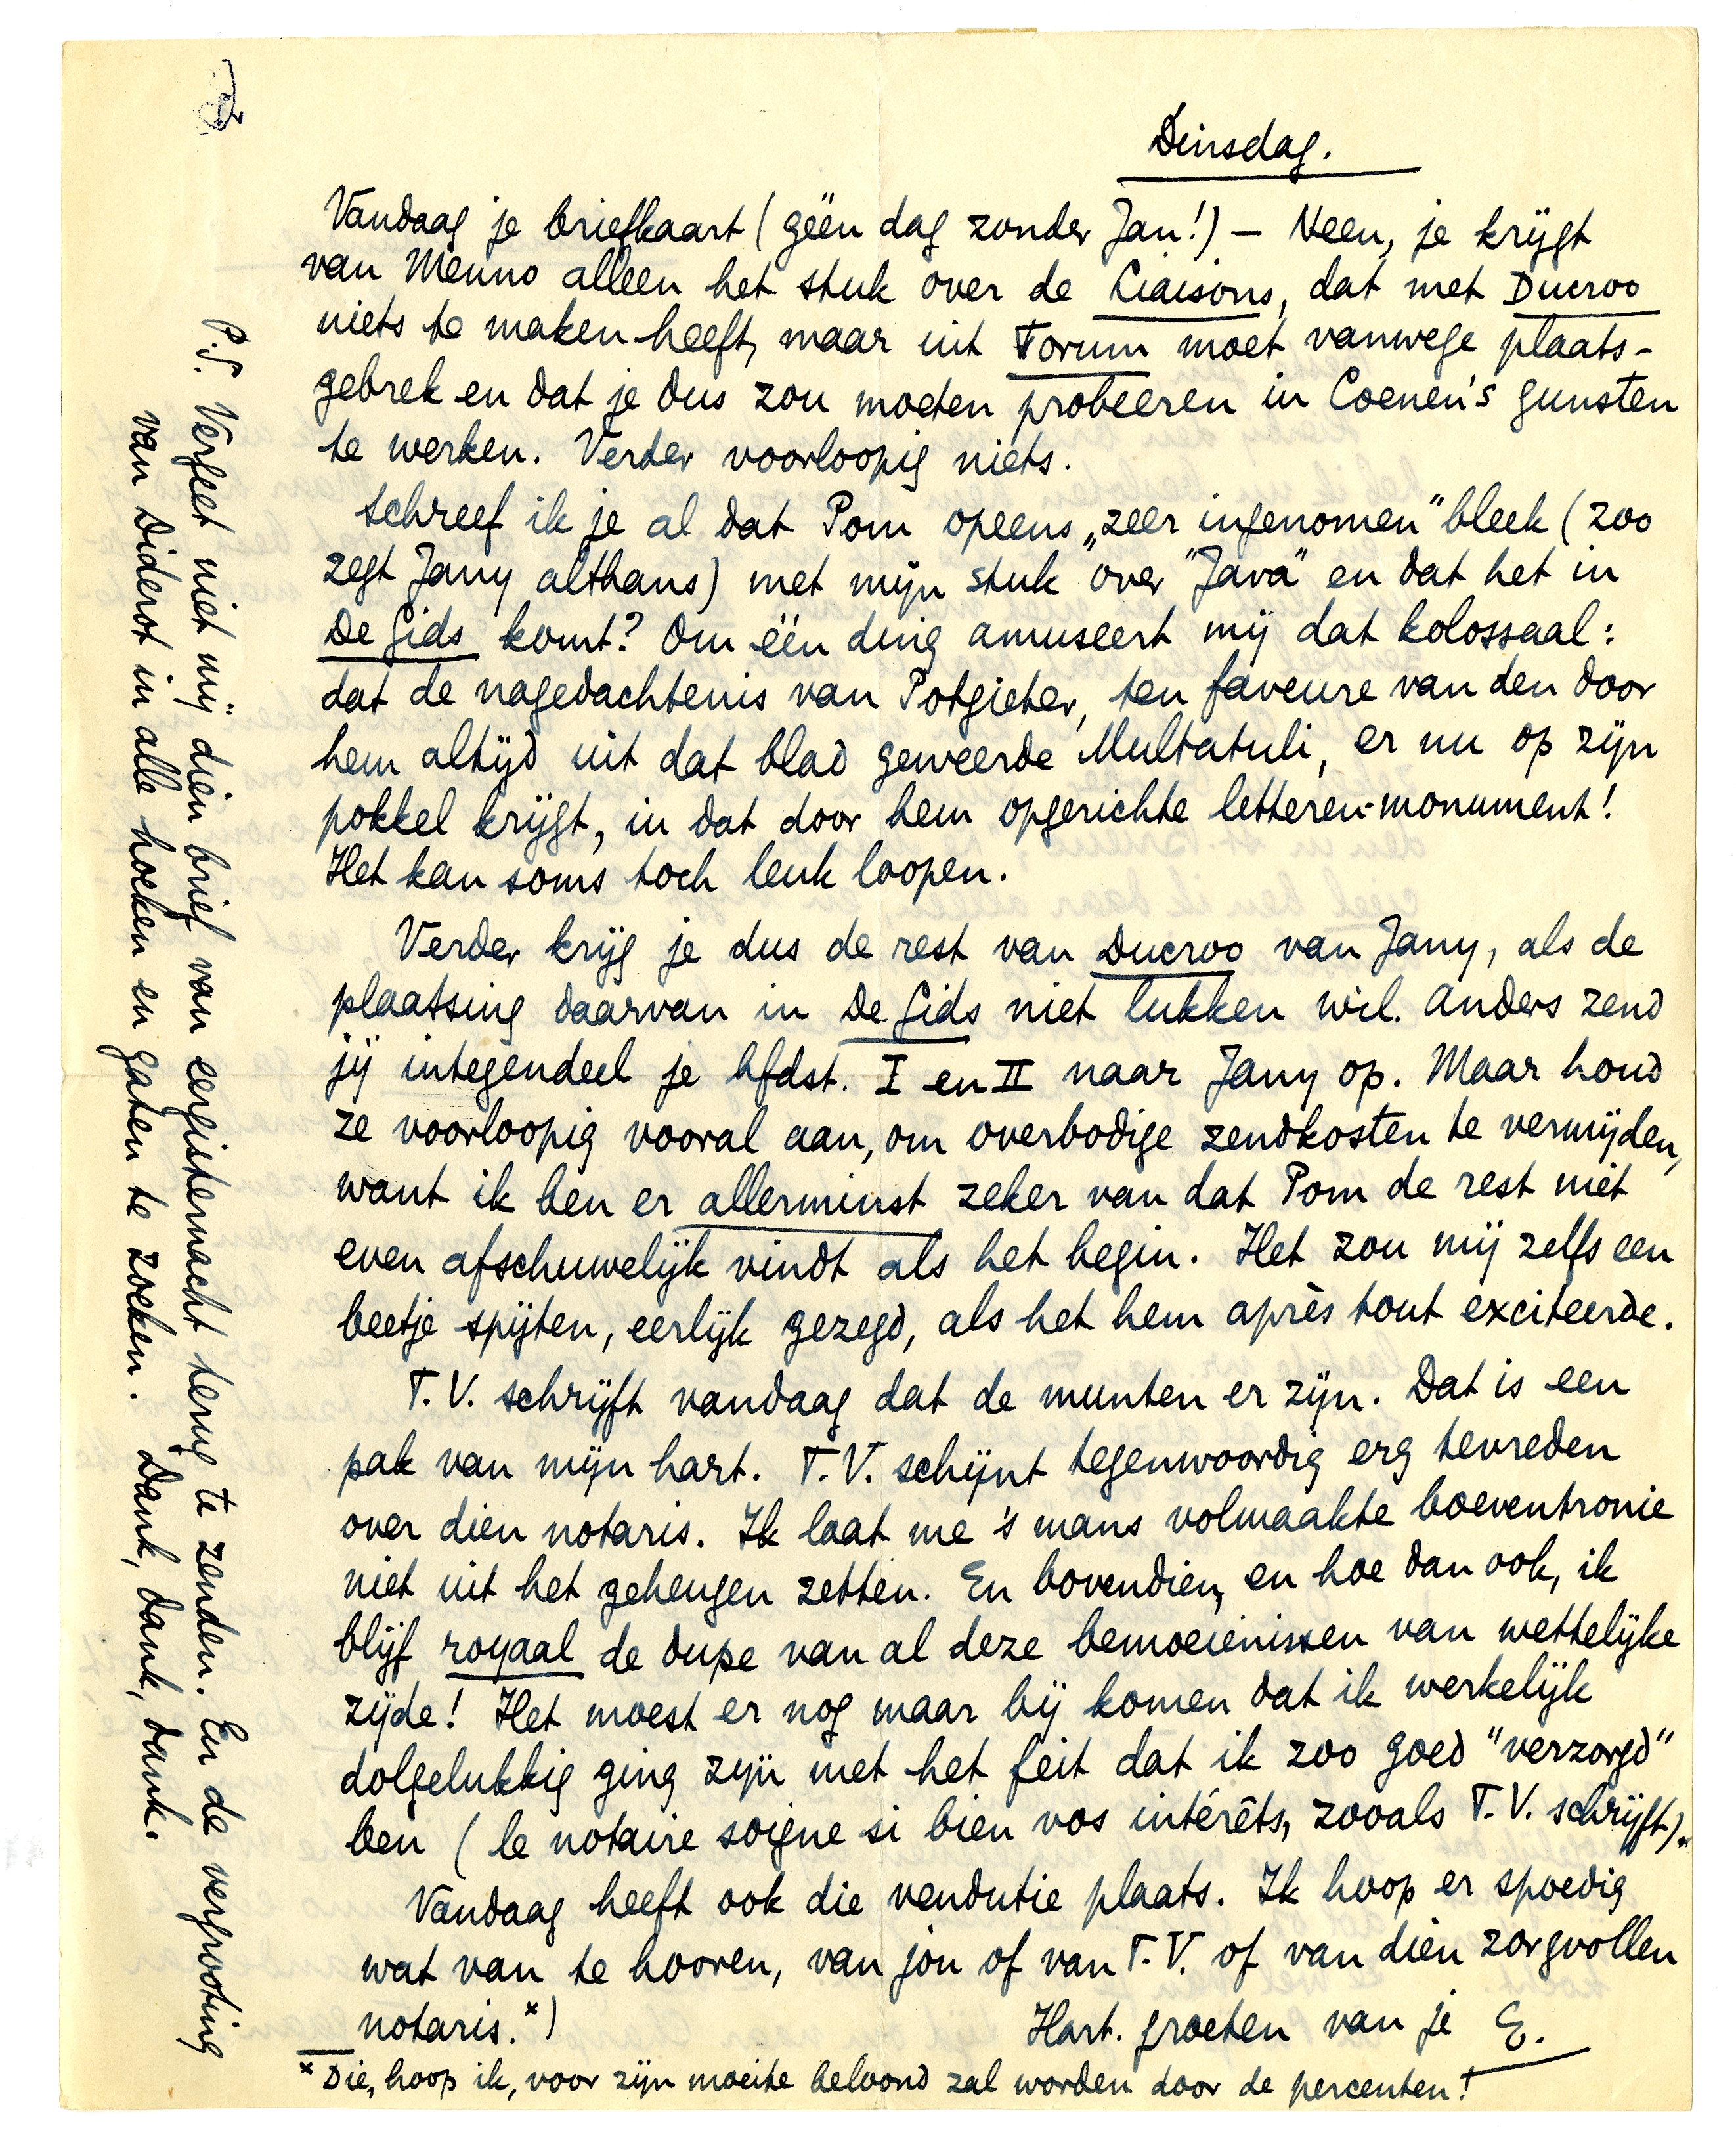 Dinsdag.
Vandaag je briefkaart (géén dag zonder Jan!) – Neen, je krijgt
van Menno alleen het stuk over de Liaisons, dat met Ducroo
niets te maken heeft, maar uit Forum moet vanwege plaats-
gebrek en dat je dus zou moeten probeeren in Coenen's gunsten
te werken. Verder voorloopig niets.
Schreef ik je al dat Pom opeens „zeer ingenomen" bleek (zoo
zegt Jany althans) met mijn stuk over "Java" en dat het in
De Gids komt? Om één ding amuseert mij dat kolossaal:
dat de nagedachtenis van Potgieter, ten faveure van den door
hem altijd uit dat blad geweerde Multatuli, er nu op zijn
pokkel krijgt, in dat door hem opgerichte letteren-monument!
Het kan soms toch leuk loopen.
Verder krijg je dus de rest van Ducroo van Jany, als de
plaatsing daarvan in De Gids niet lukken wil. Anders zend
jij integendeel je hfdst. I en II naar Jany op. Maar houd
ze voorloopig vooral aan, om overbodige zendkosten te vermijden,
want ik ben er allerminst zeker van dat Pom de rest niet
even afschuwelijk vindt als het begin. Het zou mij zelfs een
beetje spijten, eerlijk gezegd, als het hem après tout exciteerde.
T.V. schrijft vandaag dat de munten er zijn. Dat is een
pak van mijn hart. T.V. schijnt tegenwoordig erg tevreden
over dien notaris. Ik laat me 's mans volmaakte boeventronie
niet uit het geheugen zetten. En bovendien, en hoe dan ook, ik
blijf royaal de dupe van al deze bemoeienissen van wettelijke
zijde! Het moest er nog maar bij komen dat ik werkelijk
dolgelukkig ging zijn met het feit dat ik zoo goed "verzorgd"
ben (le notaire soigne si bien vos intérêts, zooals T.V. schrijft).
Vandaag heeft ook die vendutie plaats. Ik hoop er spoedig
wat van te hooren, van jou of van T.V. of van dien zorgvollen
notaris.*)
Hart. groeten van je E.
* Die, hoop ik, voor zijn moeite beloond zal worden door de percenten!
P.S. Vergeet niet mij dien brief van eergisternacht terug te zenden. En de vergrooting
van Diderot in alle hoeken en gaten te zoeken. Dank, dank, dank.